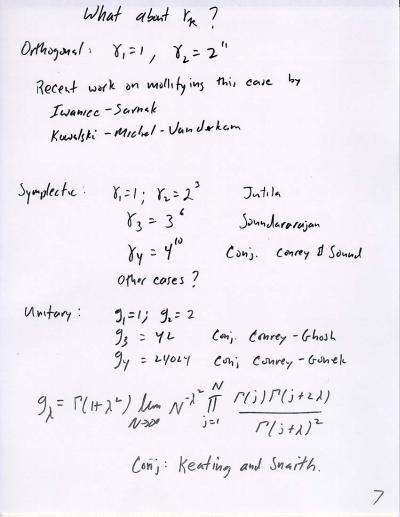 What about γ_k ?
Orthogonal: γ₁=1, γ₂=2"
Recent work on mollifying this case by
Iwaniec-Sarnak
Kowalski-Michel-Vanderkam
Symplectic: γ₁=1; γ₂=2³ Jutila
γ₃=3⁶ Soundararajan
γ₄=4¹⁰ Conj. Conrey & Sound
Other cases?
Unitary: g₁=1; g₂=2
g₃=42 Conj. Conrey-Ghosh
g₄=24024 Conj Conrey-Gonek
g_λ = Γ(1+λ²) lim_{N→∞} N^{-λ²} ∏_{j=1}^{N} Γ(j)Γ(j+2λ) / Γ(j+λ)²
Conj: Keating and Snaith.
7